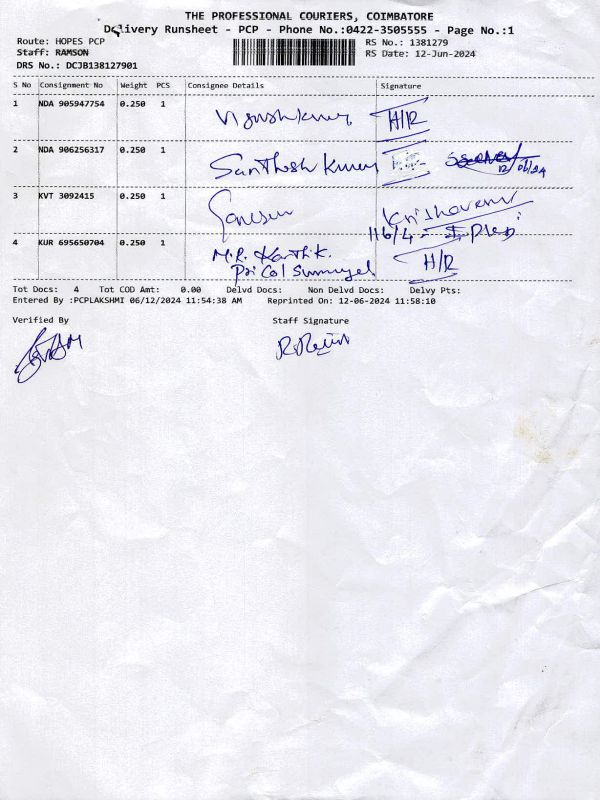 THE PROFESSIONAL COURIERS, COIMBATORE
Delivery Runsheet - PCP - Phone No.:0422-3505555 - Page No.:1
Route: HOPES PCP
RS No.: 1381279
Staff: RAMSON
RS Date: 12-Jun-2024
DRS No.: DCJB138127901
S No Consignment No Weight PCS Consignee Details Signature
1 NDA 905947754 0.250 1 H/R
2 NDA 906256317 0.250 1 Santhosh Kumar 12/06/24
3 KVT 3092415 0.250 1 Ganesan
4 KUR 695650704 0.250 1 M.R. Karthik. H/R
Tot Docs: 4 Tot COD Amt: 0.00 Delvd Docs: Non Delvd Docs: Delvy Pts:
Entered By :PCPLAKSHMI 06/12/2024 11:54:38 AM Reprinted On: 12-06-2024 11:58:10
Verified By Staff Signature